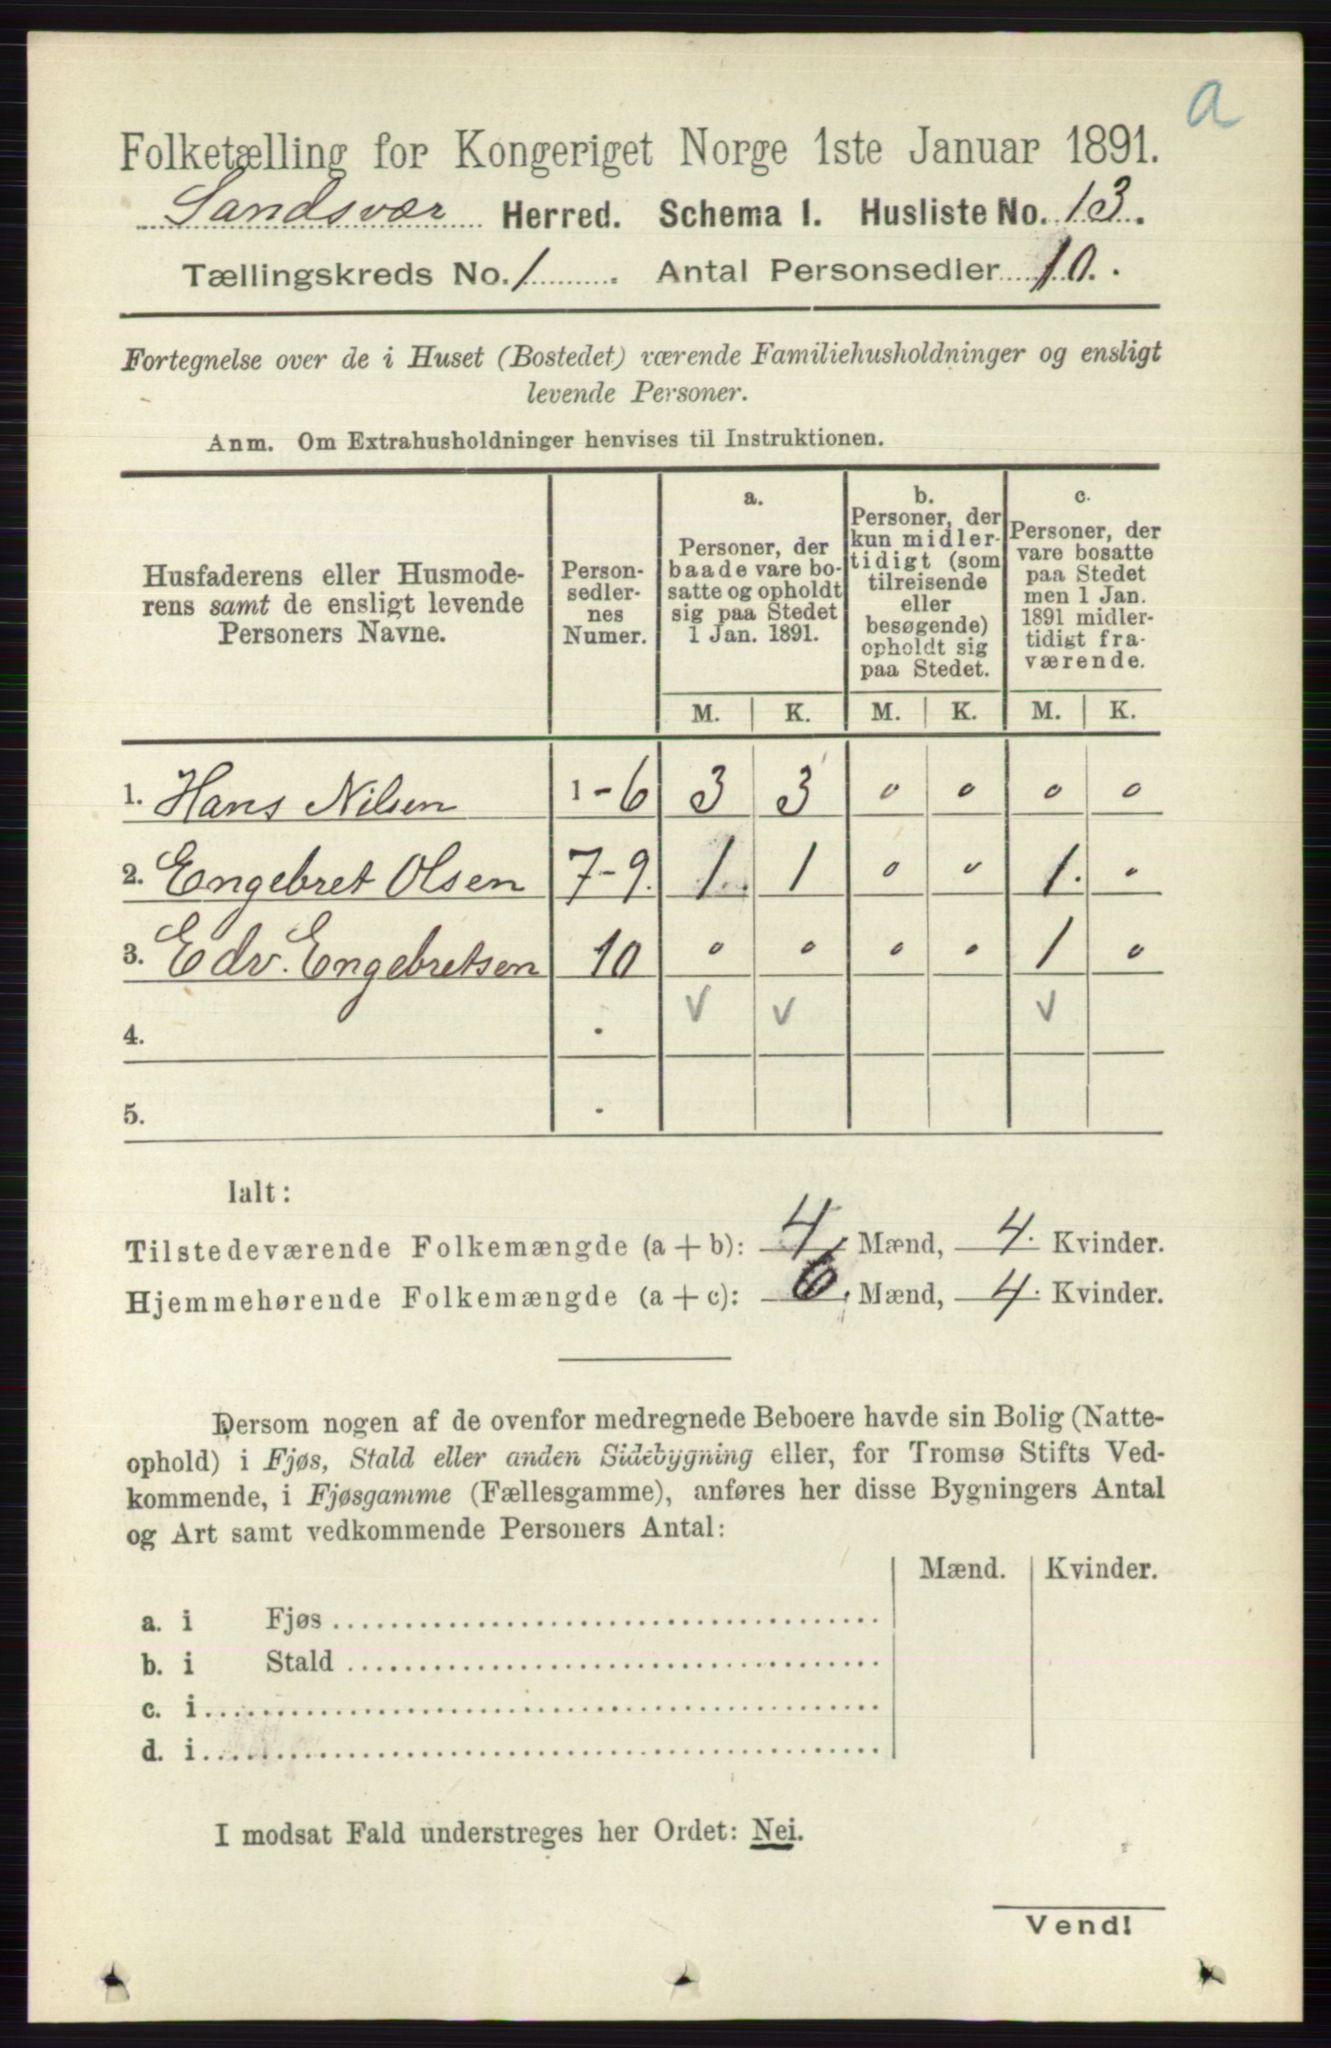 a
Folketælling for Kongeriget Norge 1ste Januar 1891.
Sandsvær Herred. Schema 1. Husliste No. 13.
Tællingskreds No. 1. Antal Personsedler 10.
Fortegnelse over de i Huset (Bostedet) værende Familiehusholdninger og ensligt
levende Personer.
Anm. Om Extrahusholdninger henvises til Instruktionen.
Husfaderens eller Husmode-
rens samt de ensligt levende
Personers Navne.
Person-
sedler-
nes
Numer.
a.
Personer, der
baade vare bo-
satte og opholdt
sig paa Stedet
1 Jan. 1891.
b.
Personer, der
kun midler-
tidigt (som
tilreisende
eller
besøgende)
opholdt sig
paa Stedet.
c.
Personer, der
vare bosatte
paa Stedet
men 1 Jan.
1891 midler-
tidigt fra-
værende.
M. K. M. K. M. K.
1. Hans Nilsen 1-6 3 3 0 0 0 0
2. Engebret Olsen 7-9. 1. 1 0 0 1. 0
3. Edv. Engebretsen 10 0 0 0 0 1 0
4. . V V V
5. .
Ialt:
Tilstedeværende Folkemængde (a + b): 4. Mænd, 4. Kvinder.
Hjemmehørende Folkemængde (a + c): 6. Mænd, 4. Kvinder.
Dersom nogen af de ovenfor medregnede Beboere havde sin Bolig (Natte-
ophold) i Fjøs, Stald eller anden Sidebygning eller, for Tromsø Stifts Ved-
kommende, i Fjøsgamme (Fællesgamme), anføres her disse Bygningers Antal
og Art samt vedkommende Personers Antal:
Mænd. Kvinder.
a. i Fjøs
b. i Stald
c. i
d. i
I modsat Fald understreges her Ordet: Nei.
Vend!